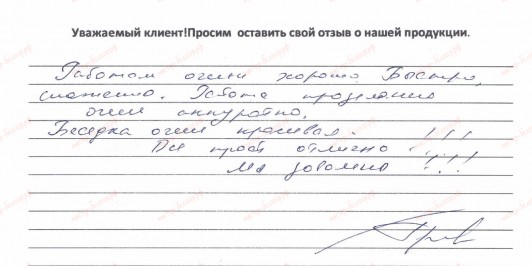 Уважаемый клиент!Просим оставить свой отзыв о нашей продукции.
Работали очень хорошо Быстро,
слаженно. Работа проделана
очень аккуратно.
Беседка очень красивая. !!!
Все просто отлично
Мы довольны !!!